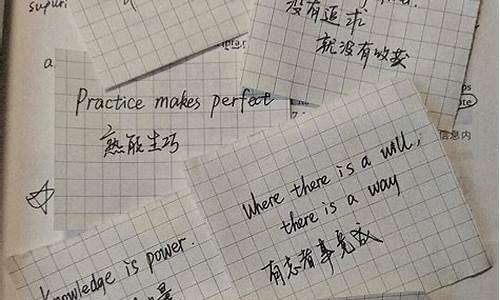 没有追求
就没有收获
a
Practice makes perfect
熟能生巧
信息内
where there is a will,
there is a way
有志者事竟成
Knowledge is power.
量